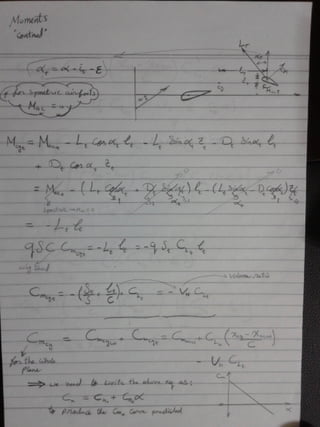 Moments
"Control"
α_t = α - i_t - ε
* for symmetric airfoils
M_ac = 0
M_cg_t = M_ac_t - L_t cos α_t l_t - L_t sin α_t z_t - D_t sin α_t l_t
+ D_t cos α_t z_t
= M_ac_t - (L_t cos α_t + D_t sin α_t) l_t - (L_t sin α_t - D_t cos α_t) z_t
= - L_t l_t
q S C C_m_cg_t = - L_t l_t = - q S_t C_L_t l_t
C_m_cg_t = - (S_t/S · l_t/C) · C_L_t = - V_H C_L_t
volume ratio
C_m_cg = C_m_cg_w + C_m_cg_t = C_m_ac_w + C_L_w (x_cg - x_ac_w / C)
- V_H C_L_t
for the whole
plane
⇒ we need to write the above eq as:
C_m = C_m_0 + C_m_α α
↳ produce the C_m curve predicted
C_m
α